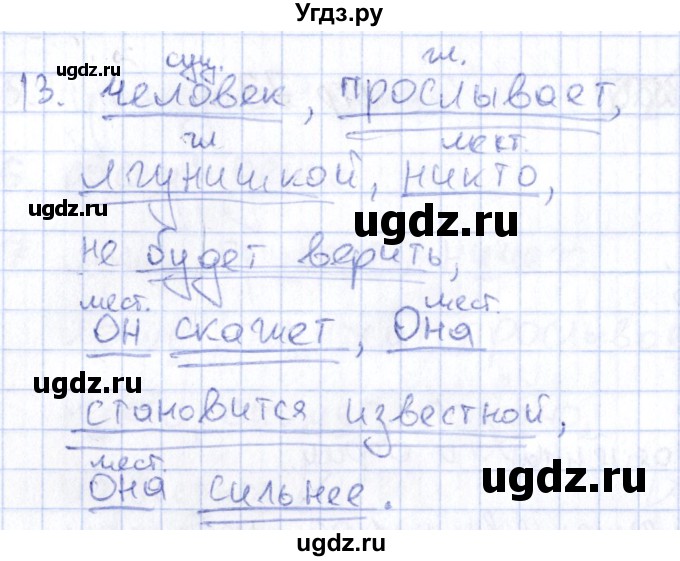 Угдз.ру
сущ. гл.
13. человек, прослывает,
гл мест.
лгунишкой, никто,
не будет верить,
мест. мест.
он скажет, Она
становится известной,
мест.
Она сильнее.
ugdz.ru
ugdz.ru
ugdz.ru
ugdz.ru
ugdz.ru
ugdz.ru
ugdz.ru
ugdz.ru
ugdz.ru